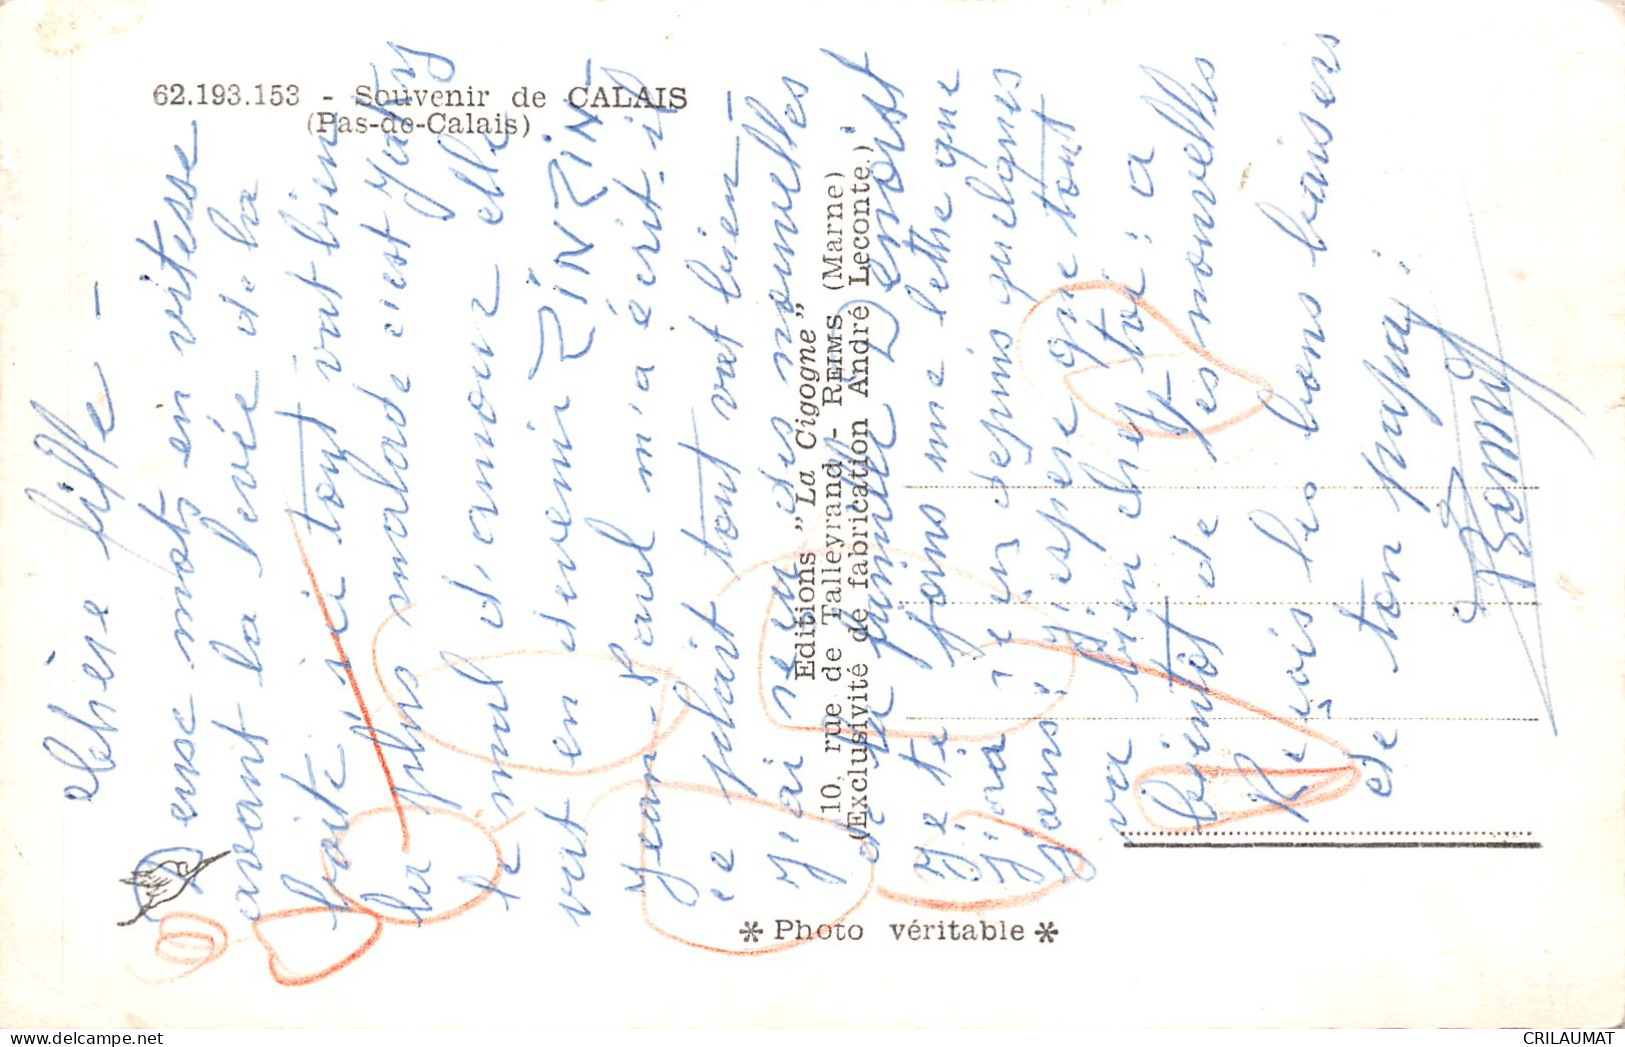 62.193.153 - Souvenir de CALAIS
(Pas-de-Calais)
Chère fiffe -
2 euse mots en vitesse
avant la levée de la
boite ici tout vat bien
la plus malade c'est
le mal d'amour elle
vat en devenir ZINZIN-
Jean-Paul m'a écrit il
ce plait tout vat bien -
J'ai reçu des nouvelles
de la famille Benoist
Je te fous une lettre que
J'orai reçu depuis quelques
jours; J'espère que tout
va bien chez toi; a
bientôt de tes nouvelles
Reçois les bons baisers
de ton papa;
Editions "La Cigogne"
10, rue de Talleyrand - REIMS (Marne)
(Exclusivité de fabrication André Leconte.)
* Photo véritable *
CRILAUMAT